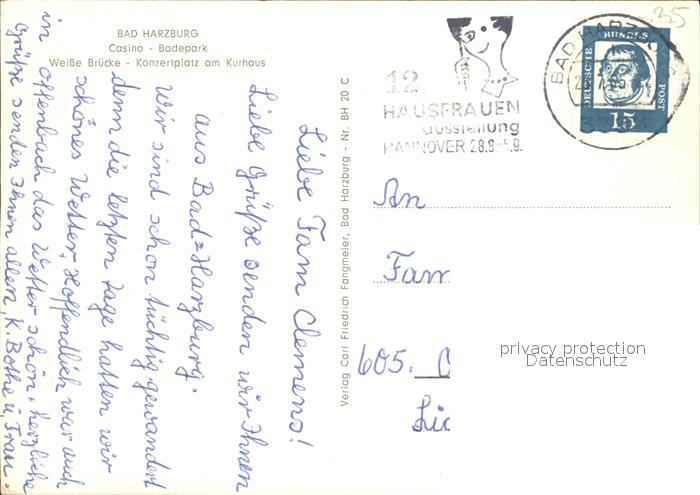 BAD HARZBURG
Casino - Badepark
Weiße Brücke - Konzertplatz am Kurhaus
Liebe Fam Clemens!
Liebe Grüße senden wir Ihnen
aus Bad=Harzburg.
Wir sind schon tüchtig gewandert
denn die letzten Tage hatten wir
schönes Wetter. Hoffendlich war auch
in Offenbach das Wetter schön. herzliche
Grüße senden Ihnen allen, K. Bothe u. Frau.
Verlag Carl Friedrich Fangmeier, Bad Harzburg - Nr. BH 20 C
12.
HAUSFRAUEN
ausstellung
HANNOVER 28.8-5.9.
BAD HARZ
DEUTSCHE BUNDESPOST
15
35
An
Fam
605.
privacy protection
Datenschutz